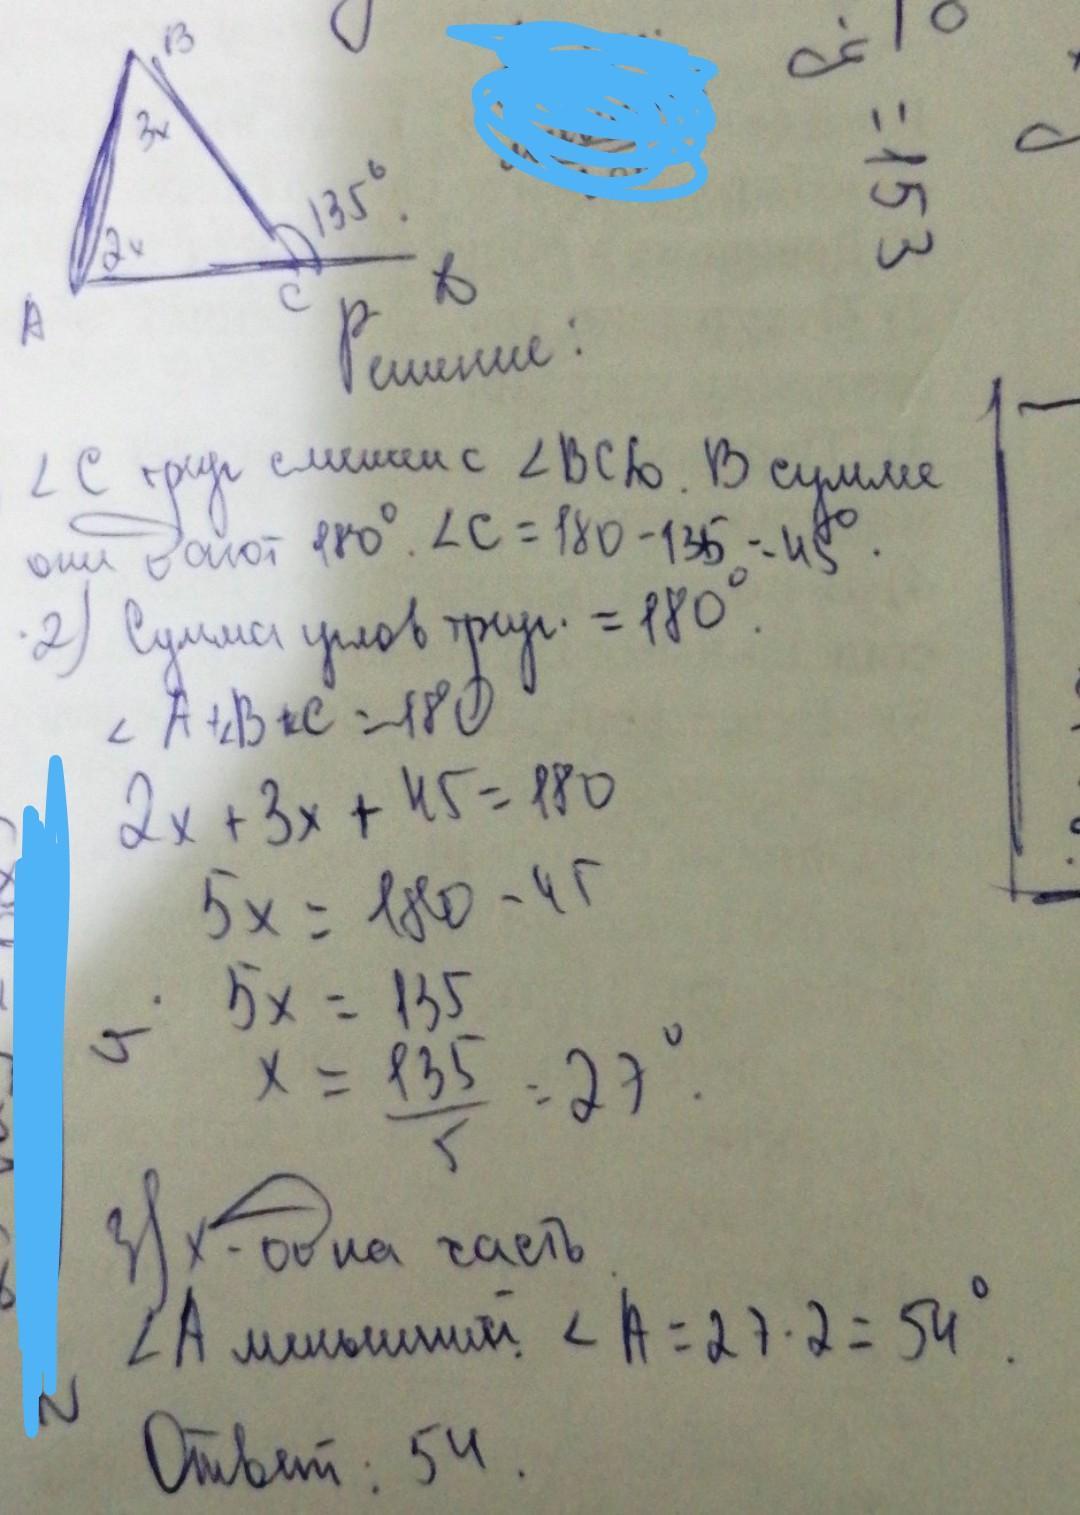 B
3x
135°.
2x
A
C
D
Решение:
∠C треуг смежен с ∠BCD. В сумме
они дают 180°. ∠C = 180 - 135 = 45°.
2) Сумма углов треуг. = 180°.
∠A+∠B+∠C = 180
2x + 3x + 45 = 180
5x = 180 - 45
5x = 135
x = 135/5 = 27°.
3) x - одна часть
∠A меньший. ∠A = 27·2 = 54°.
Ответ: 54.
=153